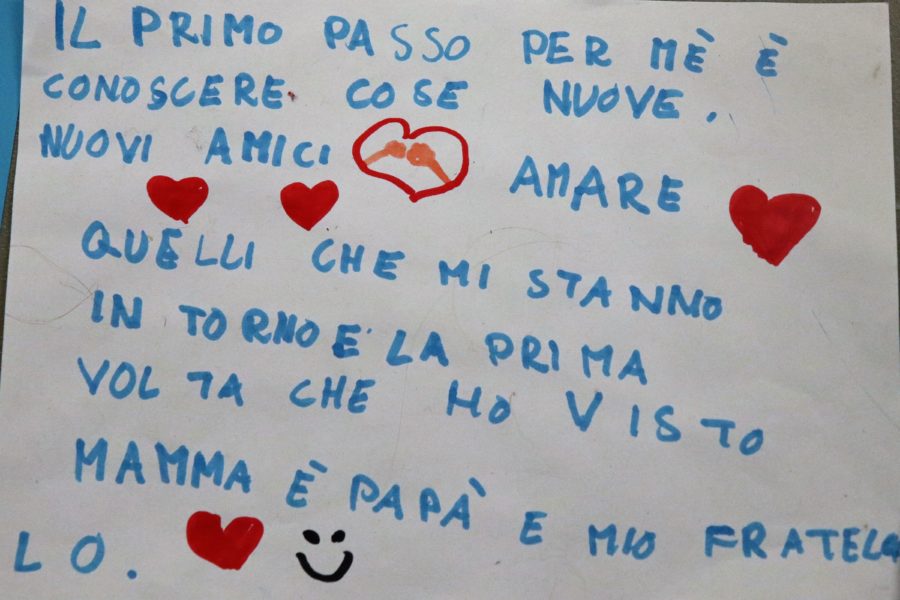 IL PRIMO PASSO PER MÈ È
CONOSCERE COSE NUOVE.
NUOVI AMICI AMARE
QUELLI CHE MI STANNO
IN TORNO E' LA PRIMA
VOLTA CHE HO VISTO
MAMMA È PAPÀ E MIO FRATELO
LO.